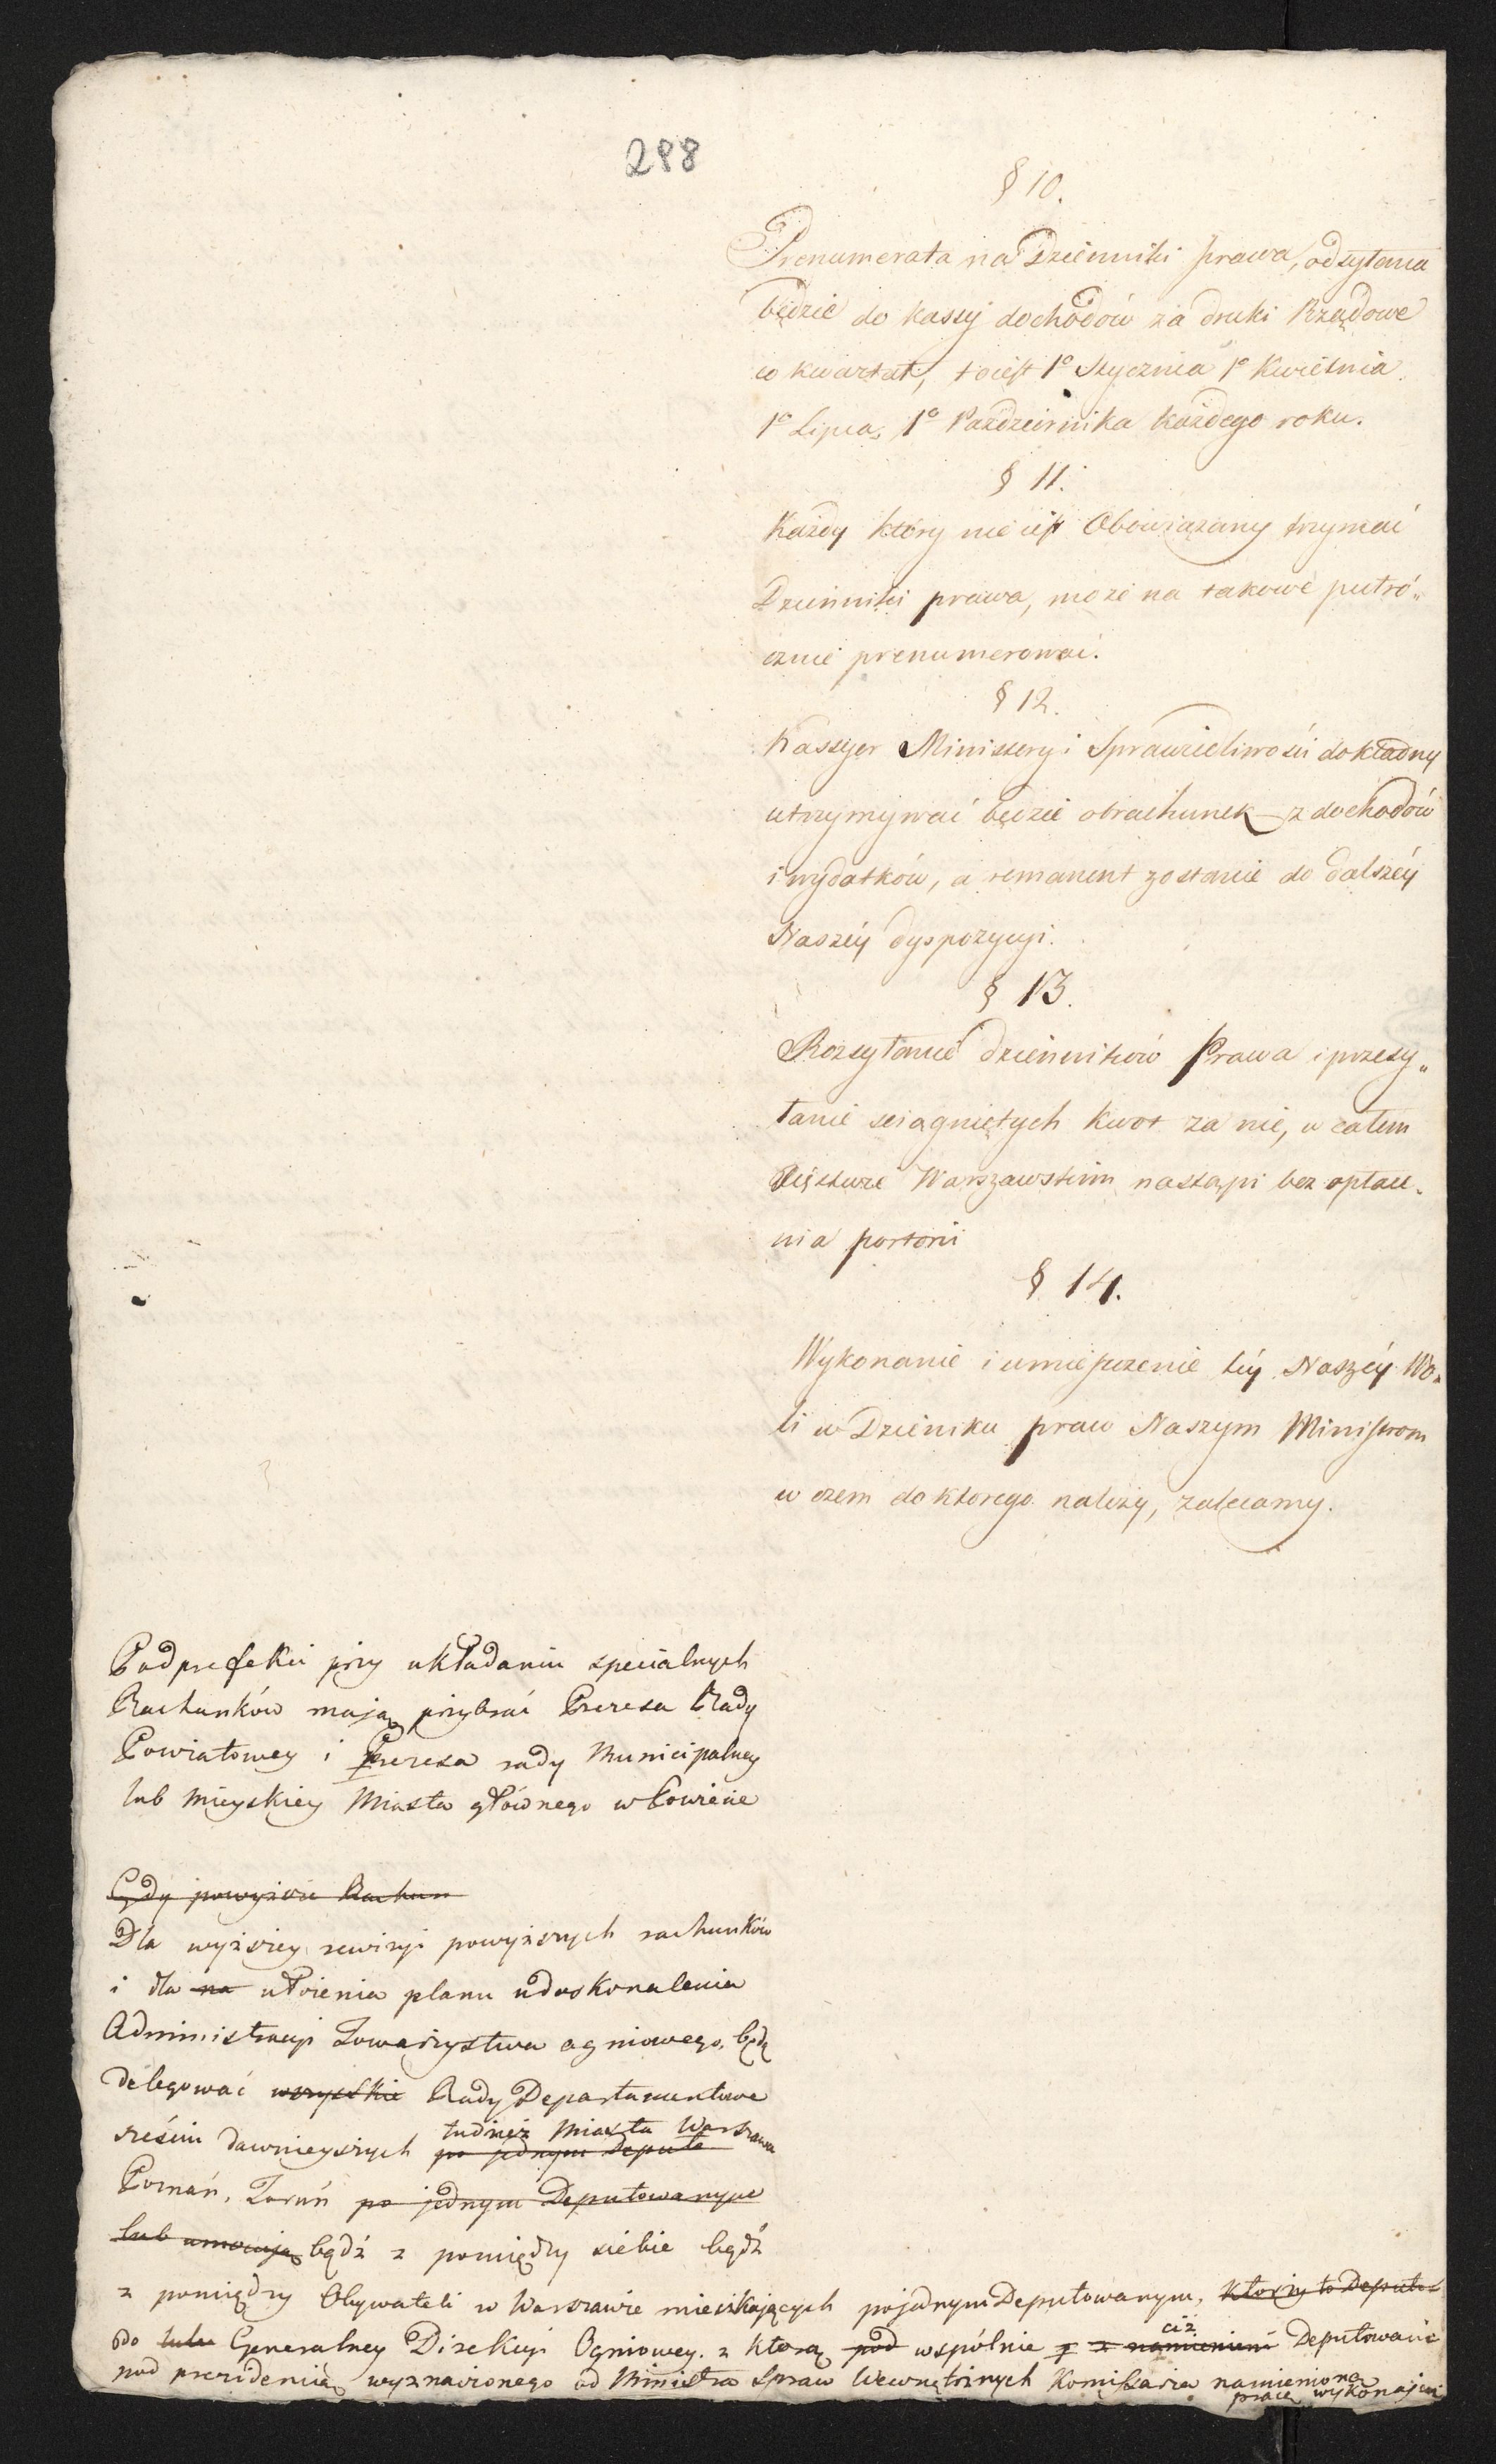 288
§ 10.
Prenumerata na Dzienniki prawa, odsyłana
będzie do kassy dochodów za druki Rządowe
co kwartał, to iest 1° Stycznia 1° Kwietnia
1° Lipca, 1° Pazdziernika każdego roku.
§ 11.
Każdy który nie iest Obowiązany trzymać
Dzienniki prawa, może na takowe pułró„
cznie prenumerować.
§ 12.
Kassyer Ministeryi Sprawiedliwości dokładny
utrzymywać będzie obrachunek z dochodów
i wydatków, a remanent zostanie do dalszéy
Naszéy dyspozycyi.
§ 13.
Rozsyłanie dzienników Prawa i przesy„
łanie sciągniętych kwot za nie, w całem
Xięstwie Warszawskim nastąpi bez opłace„
nia portorii
§ 14.
Wykonanie i umieszczenie téy Naszéy Wo„
li w Dzieniku praw Naszym Ministrom
w czem do ktorego należy, zalecamy.
Podprefekci przy układaniu specialnych
Rachunków mają przybrać Prezesa Rady
Powiatowey i Prezesa rady Municipalney
lub Mieyskiey Miasta głównego w Powiecie
Gdy powyższe Rachun
Dla wyższey rewizyi powyższych rachunków
i dla na ułożenia planu udoskonalenia
Administracyi Towarzystwa ogniowego, będą
delegować wszystkie Rady Departamentowe
tudzież Miasta Warszawa
sześciu dawnieyszych po jednym Deputo
Poznań, Toruń po jednym Deputowanym
lub umocują bądź z pomiędzy siebie bądź
z pomiędzy Obywateli w Warszawie mieszkających pojednym Deputowanym, którzy to Deputo
do Generalney Direkcyi Ogniowey. z którą pod wspólnie z namienieni ciż Deputowani
pod prezidencią wyznaczonego od Ministra Spraw Wewnętrznych Komissarza namienioną
pracę wykonają